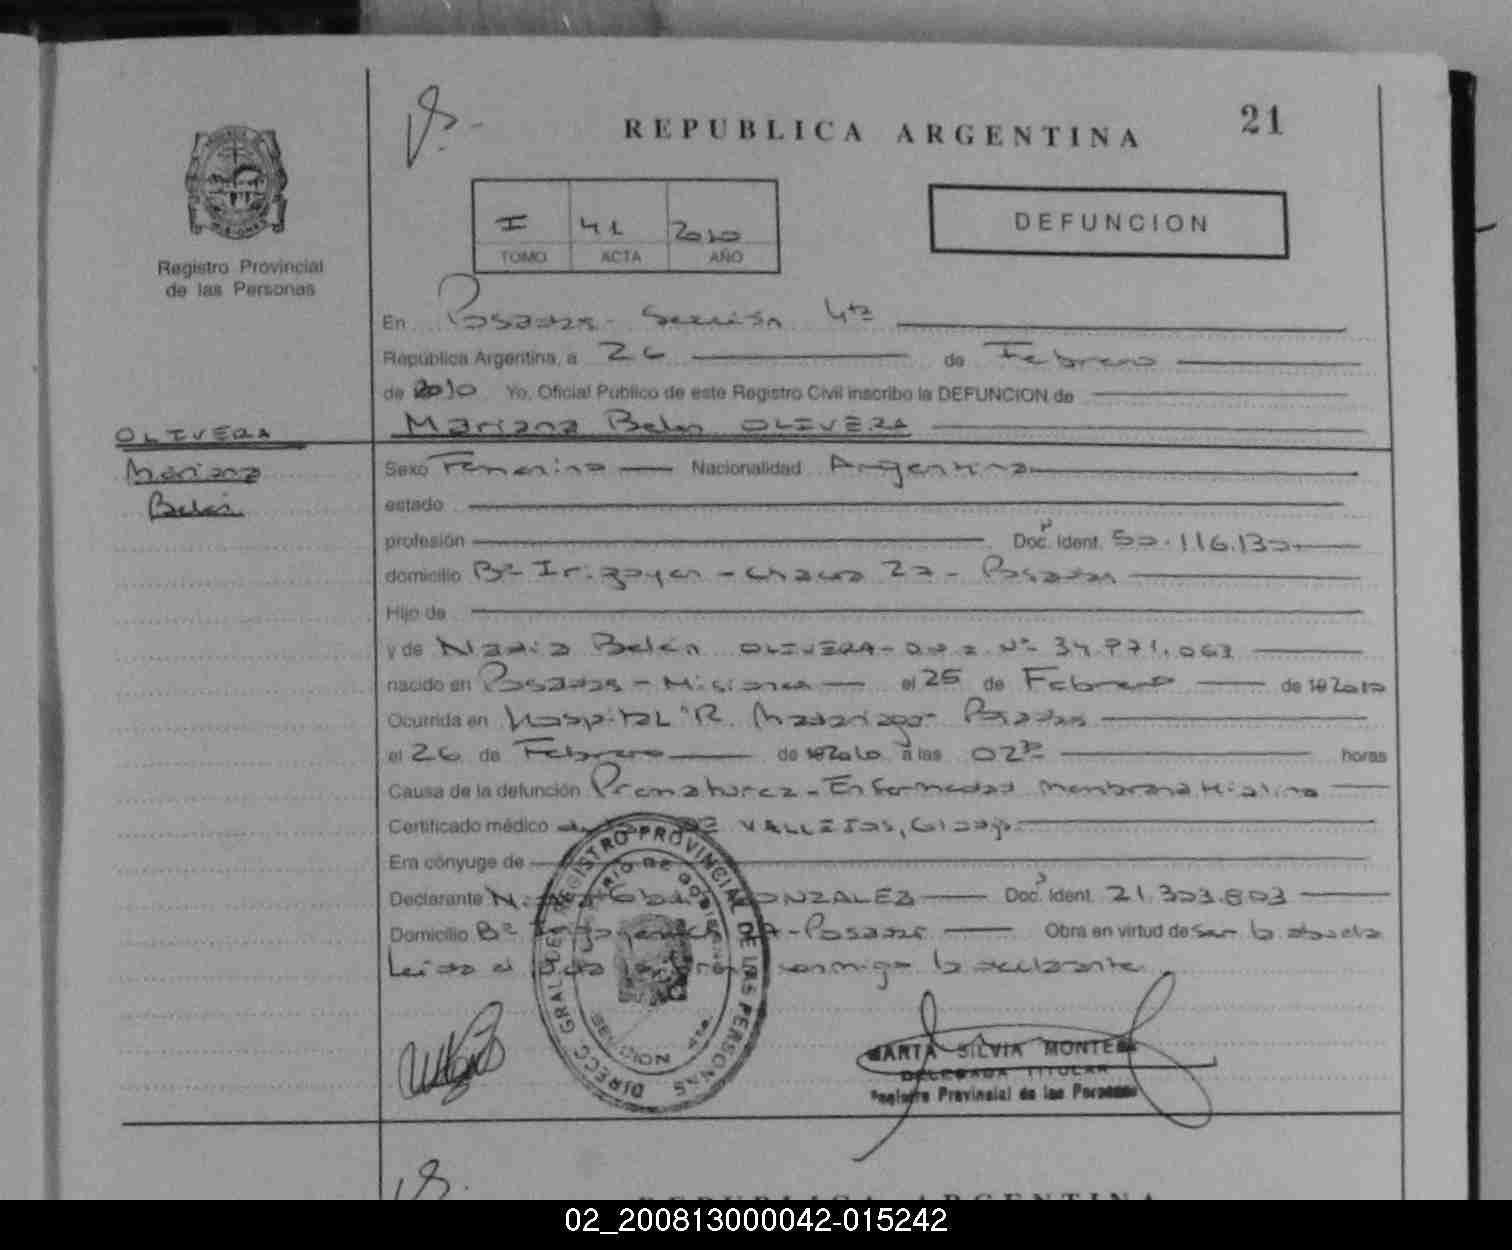 REPUBLICA ARGENTINA
21
I 41 2010
TOMO ACTA AÑO
DEFUNCION
Registro Provincial
de las Personas
En Posadas - Sección 4ta
República Argentina, a 26 de Febrero
de 2010 Yo, Oficial Público de este Registro Civil inscribo la DEFUNCION de
Mariana Belén OLIVERA
OLIVERA
Mariana
Belén
Sexo Femenino Nacionalidad Argentina
estado
profesión Doc. Ident. 50.116.130
domicilio Bº Irigoyen - Chacra - Posadas
Hijo de
y de Belén OLIVERA - Nº 34.771.063
nacido en Posadas - Misiones el 25 de Febrero de 19 2010
Ocurrida en Hospital "R. Madariaga - Posadas
el 26 de Febrero de 19 2010 a las 02 30 horas
Causa de la defunción Prematurez - Enfermedad Membrana Hialina
Certificado médico VALLEJOS,
Era cónyuge de
Declarante GONZALEZ Doc. Ident. 21.303.803
Domicilio Bº - Posadas Obra en virtud de ser la abuela
Leída el acta conmigo la declarante.
DIRECC. GRAL. DEL REGISTRO PROVINCIAL DE LAS PERSONAS
MINISTERIO DE GOBIERNO
SECCION 4ta.
MARTA SILVIA MONTE
DELEGADA TITULAR
Registro Provincial de las Personas
REPUBLICA ARGENTINA
02_200813000042-015242